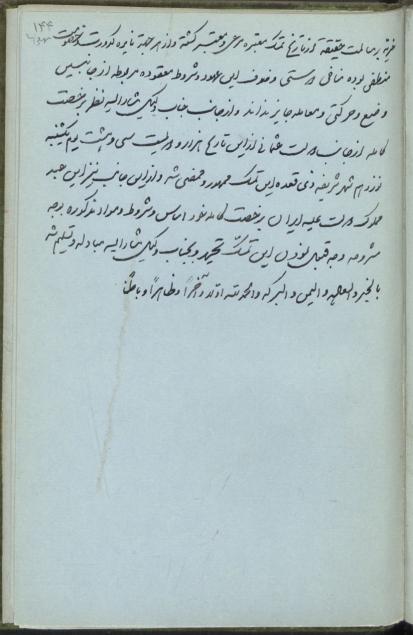 ۱۴۴
بر مسالمت حقیقة از تاریخ تمسک معتبره مرعی و معتبر گشته و از هر جهة نایره کدورت و خصومت
منطفی بوده منافی درستی و خلوف این عهود و شروط معقوده مربوطه از جانبین
وضع و حرکتی و معامله جایز ندانند و از جانب جناب وکیل مشارالیه نظر برخصت
کامله از جانب دولت عثمانی از این تاریخ هزار و دویست سی و هشت یوم یکشنبه
نوزدهم شهر شریفه ذی قعده این تمسک ممهور و ممضی شد و از این جانب نیز این عبد
مملوک دولت علیه ایران برخصت کامله خود اساس و شروط و مواد مذکوره بوجه
مشروحه وجه قبول نمودن این تمسک تحریر و بجناب وکیل مشارالیه مبادله و تسلیم شد
بالخیر والسعد والیمن والبرکه والحمدلله اولاً و آخراً و ظاهراً و باطناً